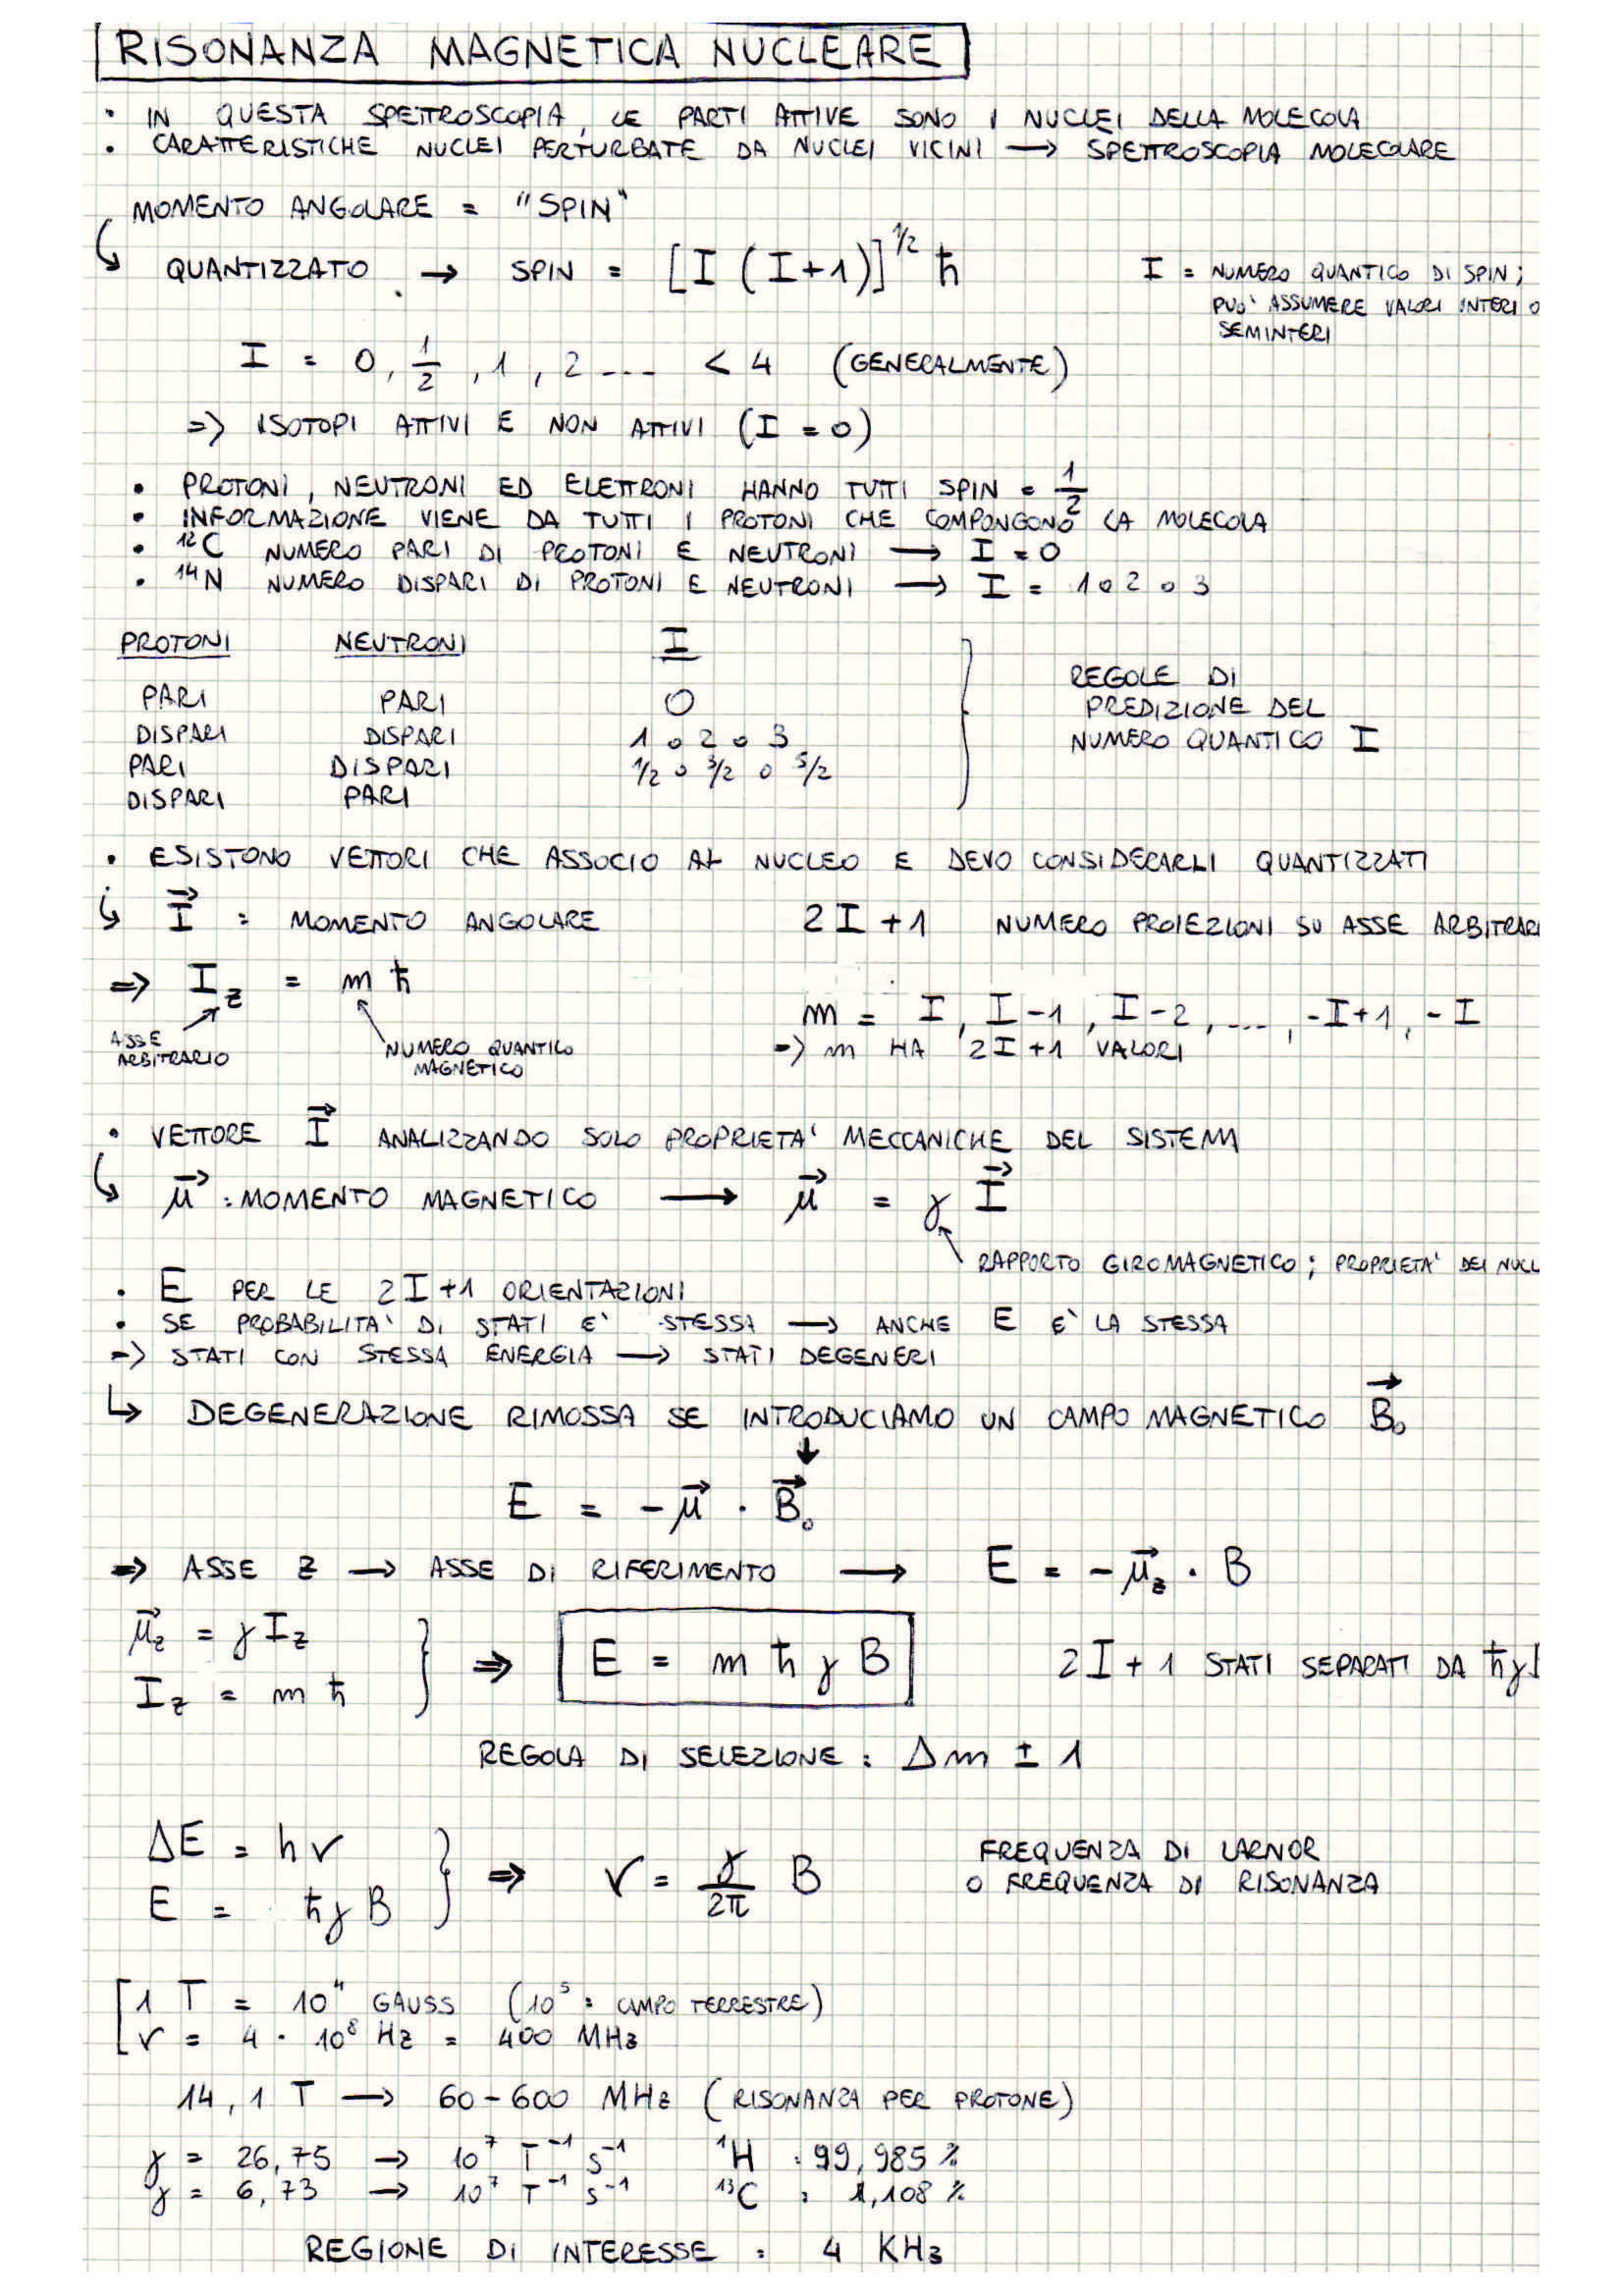 RISONANZA MAGNETICA NUCLEARE
• IN QUESTA SPETTROSCOPIA, LE PARTI ATTIVE SONO I NUCLEI DELLA MOLECOLA
• CARATTERISTICHE NUCLEI PERTURBATE DA NUCLEI VICINI → SPETTROSCOPIA MOLECOLARE
MOMENTO ANGOLARE = "SPIN"
↳ QUANTIZZATO → SPIN = [I (I+1)]^1/2 ħ
I = NUMERO QUANTICO DI SPIN;
PUO' ASSUMERE VALORI INTERI O
SEMINTERI
I = 0, 1/2, 1, 2 ... < 4 (GENERALMENTE)
=> ISOTOPI ATTIVI E NON ATTIVI (I = 0)
• PROTONI, NEUTRONI ED ELETTRONI HANNO TUTTI SPIN = 1/2
• INFORMAZIONE VIENE DA TUTTI I PROTONI CHE COMPONGONO LA MOLECOLA
• ¹²C NUMERO PARI DI PROTONI E NEUTRONI → I = 0
• ¹⁴N NUMERO DISPARI DI PROTONI E NEUTRONI → I = 1 o 2 o 3
PROTONI NEUTRONI I
PARI PARI 0
DISPARI DISPARI 1 o 2 o 3
PARI DISPARI 1/2 o 3/2 o 5/2
DISPARI PARI
REGOLE DI
PREDIZIONE DEL
NUMERO QUANTICO I
• ESISTONO VETTORI CHE ASSOCIO AL NUCLEO E DEVO CONSIDERARLI QUANTIZZATI
↳ I⃗ : MOMENTO ANGOLARE 2I+1 NUMERO PROIEZIONI SU ASSE ARBITRARI
=> I_z = m ħ
ASSE
ARBITRARIO
NUMERO QUANTICO
MAGNETICO
m = I, I-1, I-2, ..., -I+1, -I
=> m HA 2I+1 VALORI
• VETTORE I⃗ ANALIZZANDO SOLO PROPRIETA' MECCANICHE DEL SISTEMA
↳ μ⃗ : MOMENTO MAGNETICO → μ⃗ = γ I⃗
RAPPORTO GIROMAGNETICO; PROPRIETA' DEI NUCL
• E PER LE 2I+1 ORIENTAZIONI
• SE PROBABILITA' DI STATI E' STESSA → ANCHE E E' LA STESSA
=> STATI CON STESSA ENERGIA → STATI DEGENERI
↳ DEGENERAZIONE RIMOSSA SE INTRODUCIAMO UN CAMPO MAGNETICO B⃗₀
↓
E = -μ⃗ · B⃗₀
=> ASSE Z → ASSE DI RIFERIMENTO → E = -μ⃗_z · B
μ⃗_z = γ I_z
I_z = m ħ
=> E = m ħ γ B
2I+1 STATI SEPARATI DA ħγ
REGOLA DI SELEZIONE: Δm ± 1
ΔE = hν
E = ħγB
=> ν = γ/2π B
FREQUENZA DI LARNOR
O FREQUENZA DI RISONANZA
1 T = 10⁴ GAUSS (10⁵ = CAMPO TERRESTRE)
ν = 4 · 10⁸ Hz = 400 MHz
14,1 T → 60-600 MHz (RISONANZA PER PROTONE)
γ = 26,75 → 10⁷ T⁻¹ s⁻¹ ¹H : 99,985 %
γ = 6,73 → 10⁷ T⁻¹ s⁻¹ ¹³C : 1,108 %
REGIONE DI INTERESSE : 4 KHz